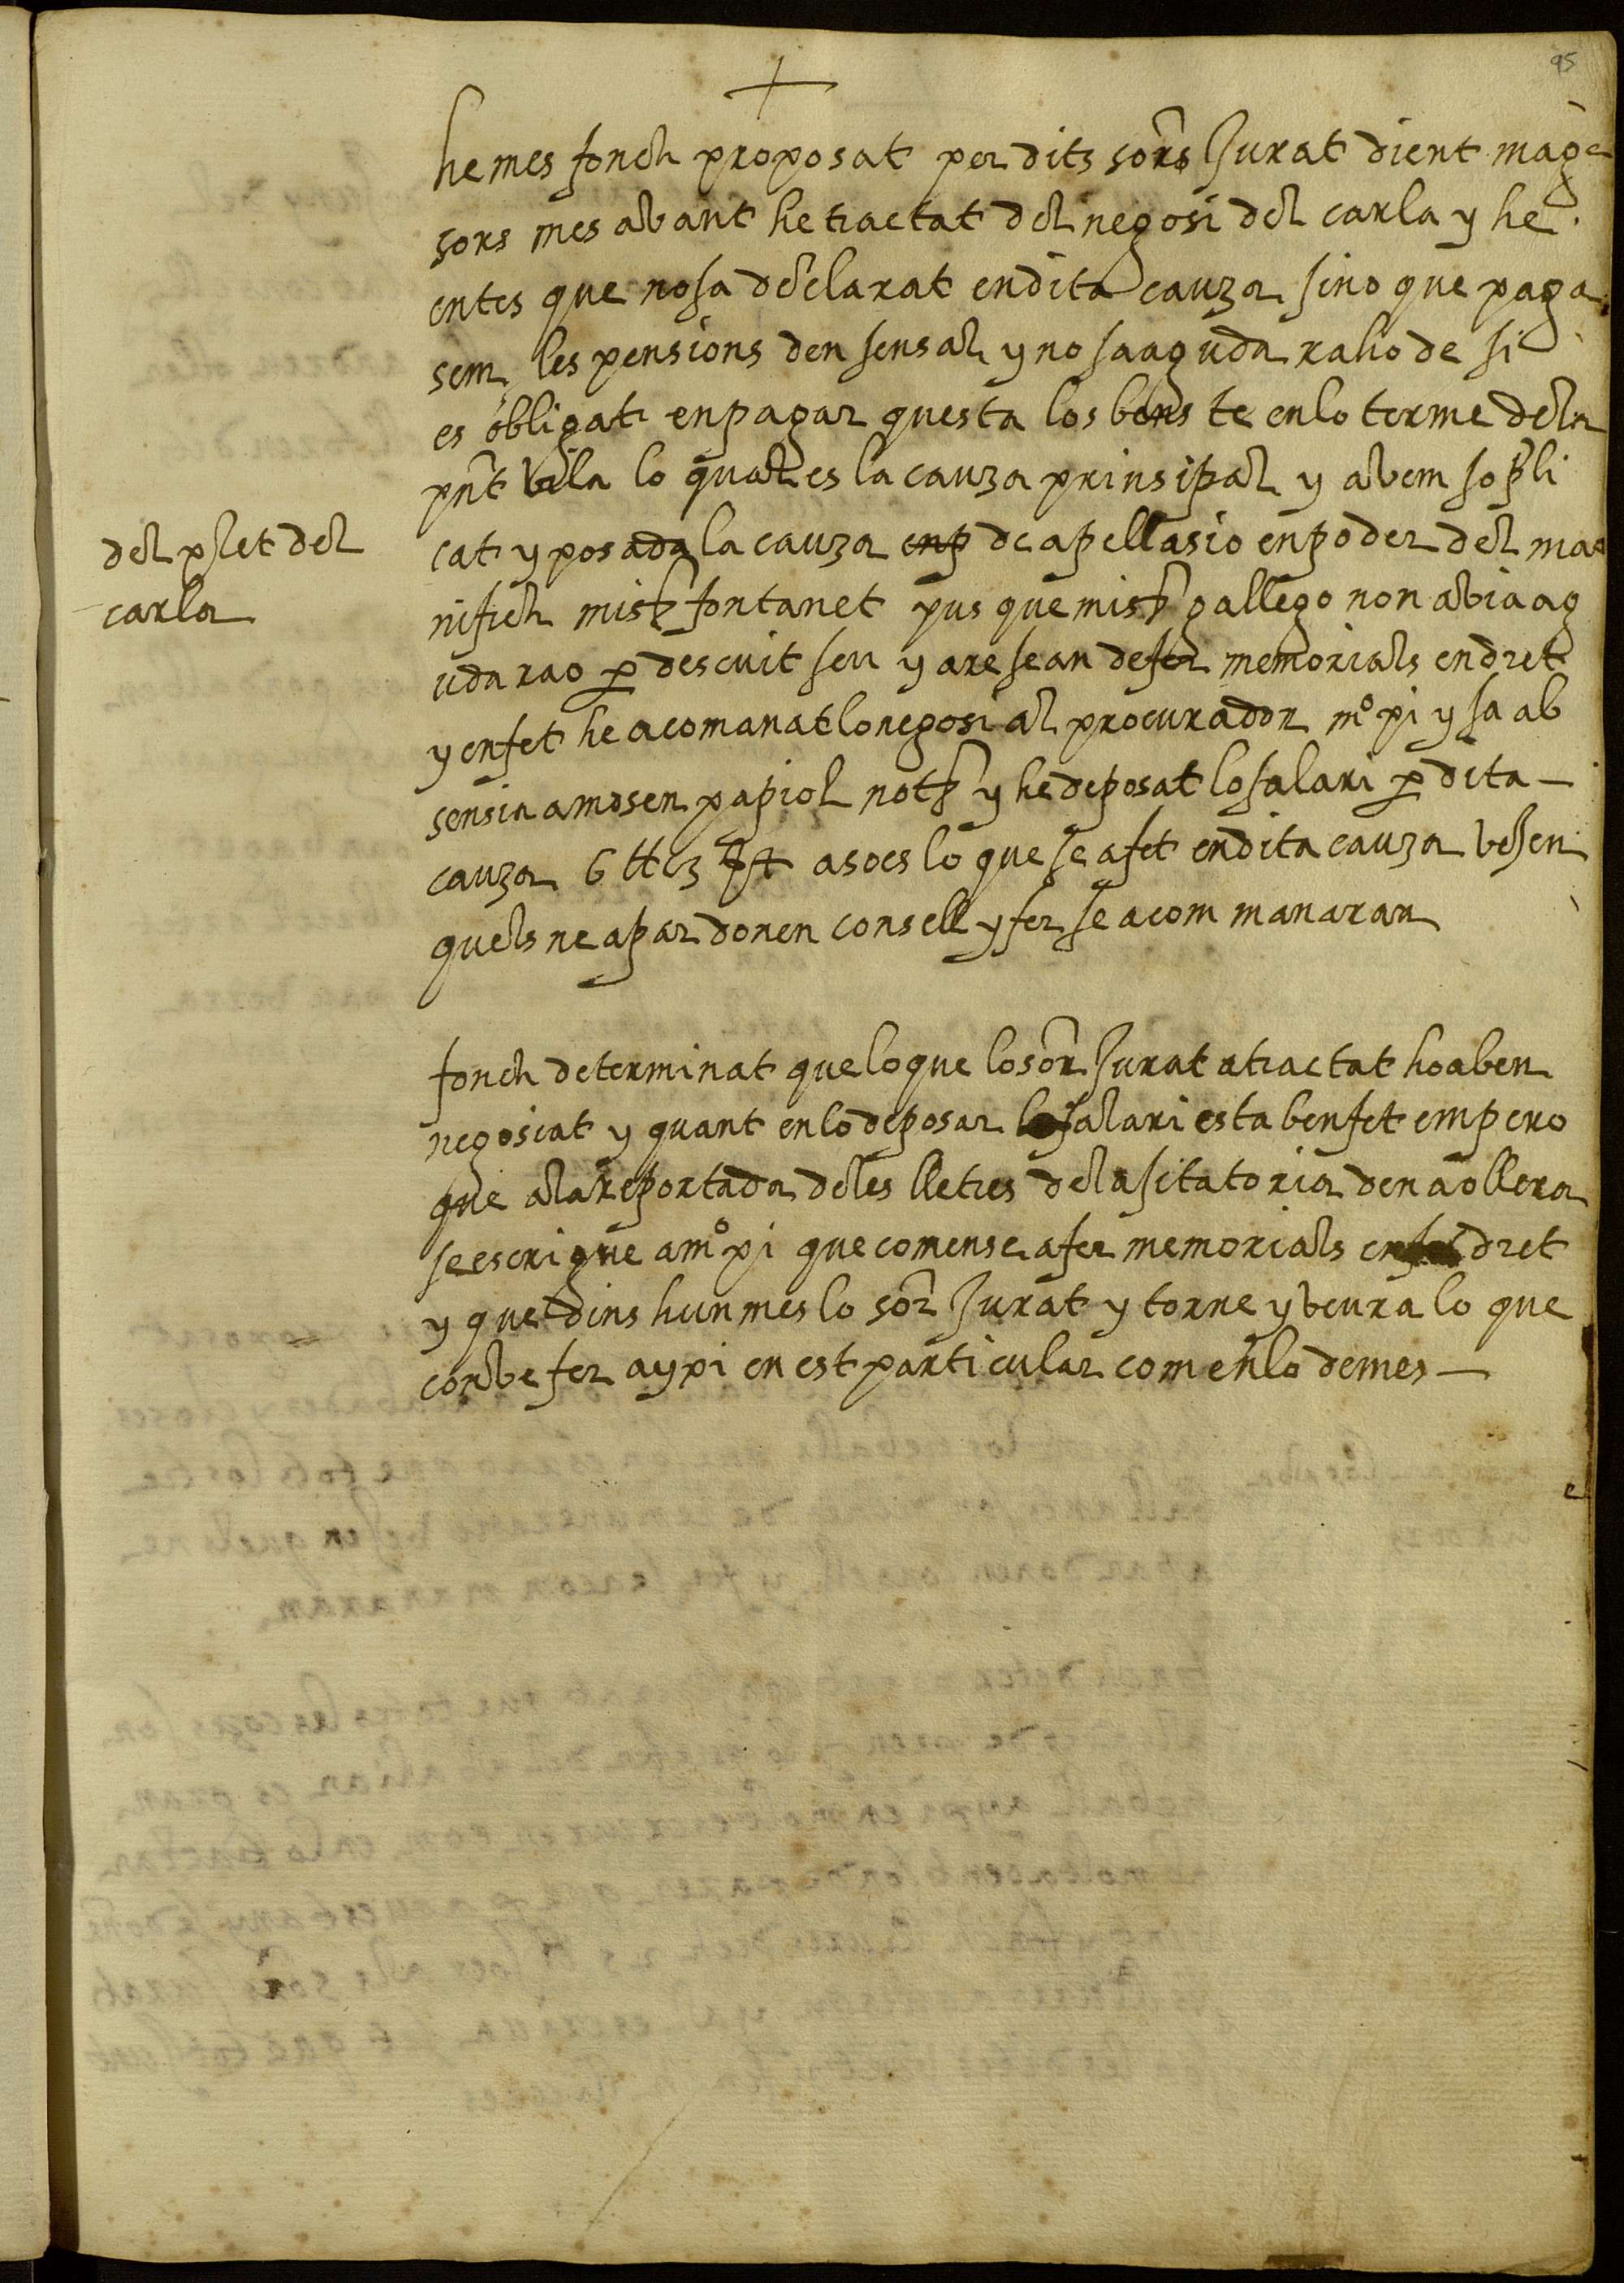 95
he mes fonch proposat per dits sors Jurat dient mag
sors mes avant he tractat del negosi del carla y he
entes que no sa declarat en dita cauza sino que paga
sem les pensions den sensal y no sa aguda raho de si
es obligat en pagar questa los bens te en lo terme dela
pnt vila lo qual es la cauza prinsipal y avem sopli
cat y posada la cauza enp de apellasio en poder del mag
nifich misr fontanet pus que misr gallego non avia ag
uda rao per descuit seu y are se an de fer memorials en dret
y en fet he acomanat lo negosi al procurador mº pi y sa ab
sensia a mosen papiol notr y he deposat lo salari per dita
cauza 6 ll asoes lo que se a fet en dita cauza vejen
quels ne apar donen consell y fer se a com manaran
del plet del
carla
fonch determinat que lo que lo sor Jurat a tractat ho a ben
negosiat y quant en lo deposar lo salari esta ben fet empero
que a la reportada deles lletres dela sitatoria den aollera
se escrigue a mº pi que comense a fer memorials en dret
y que dins hun mes lo sor Jurat y torne y veura lo que
conve fer ay pi en est particular com en lo demes